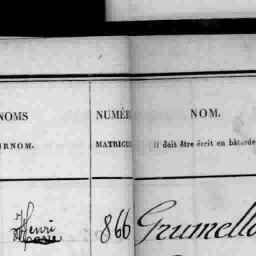 NOMS NUMÉR NOM.
RNOM. MATRICUL Il doit être écrit en bâtarde
Henri 866 Grumella